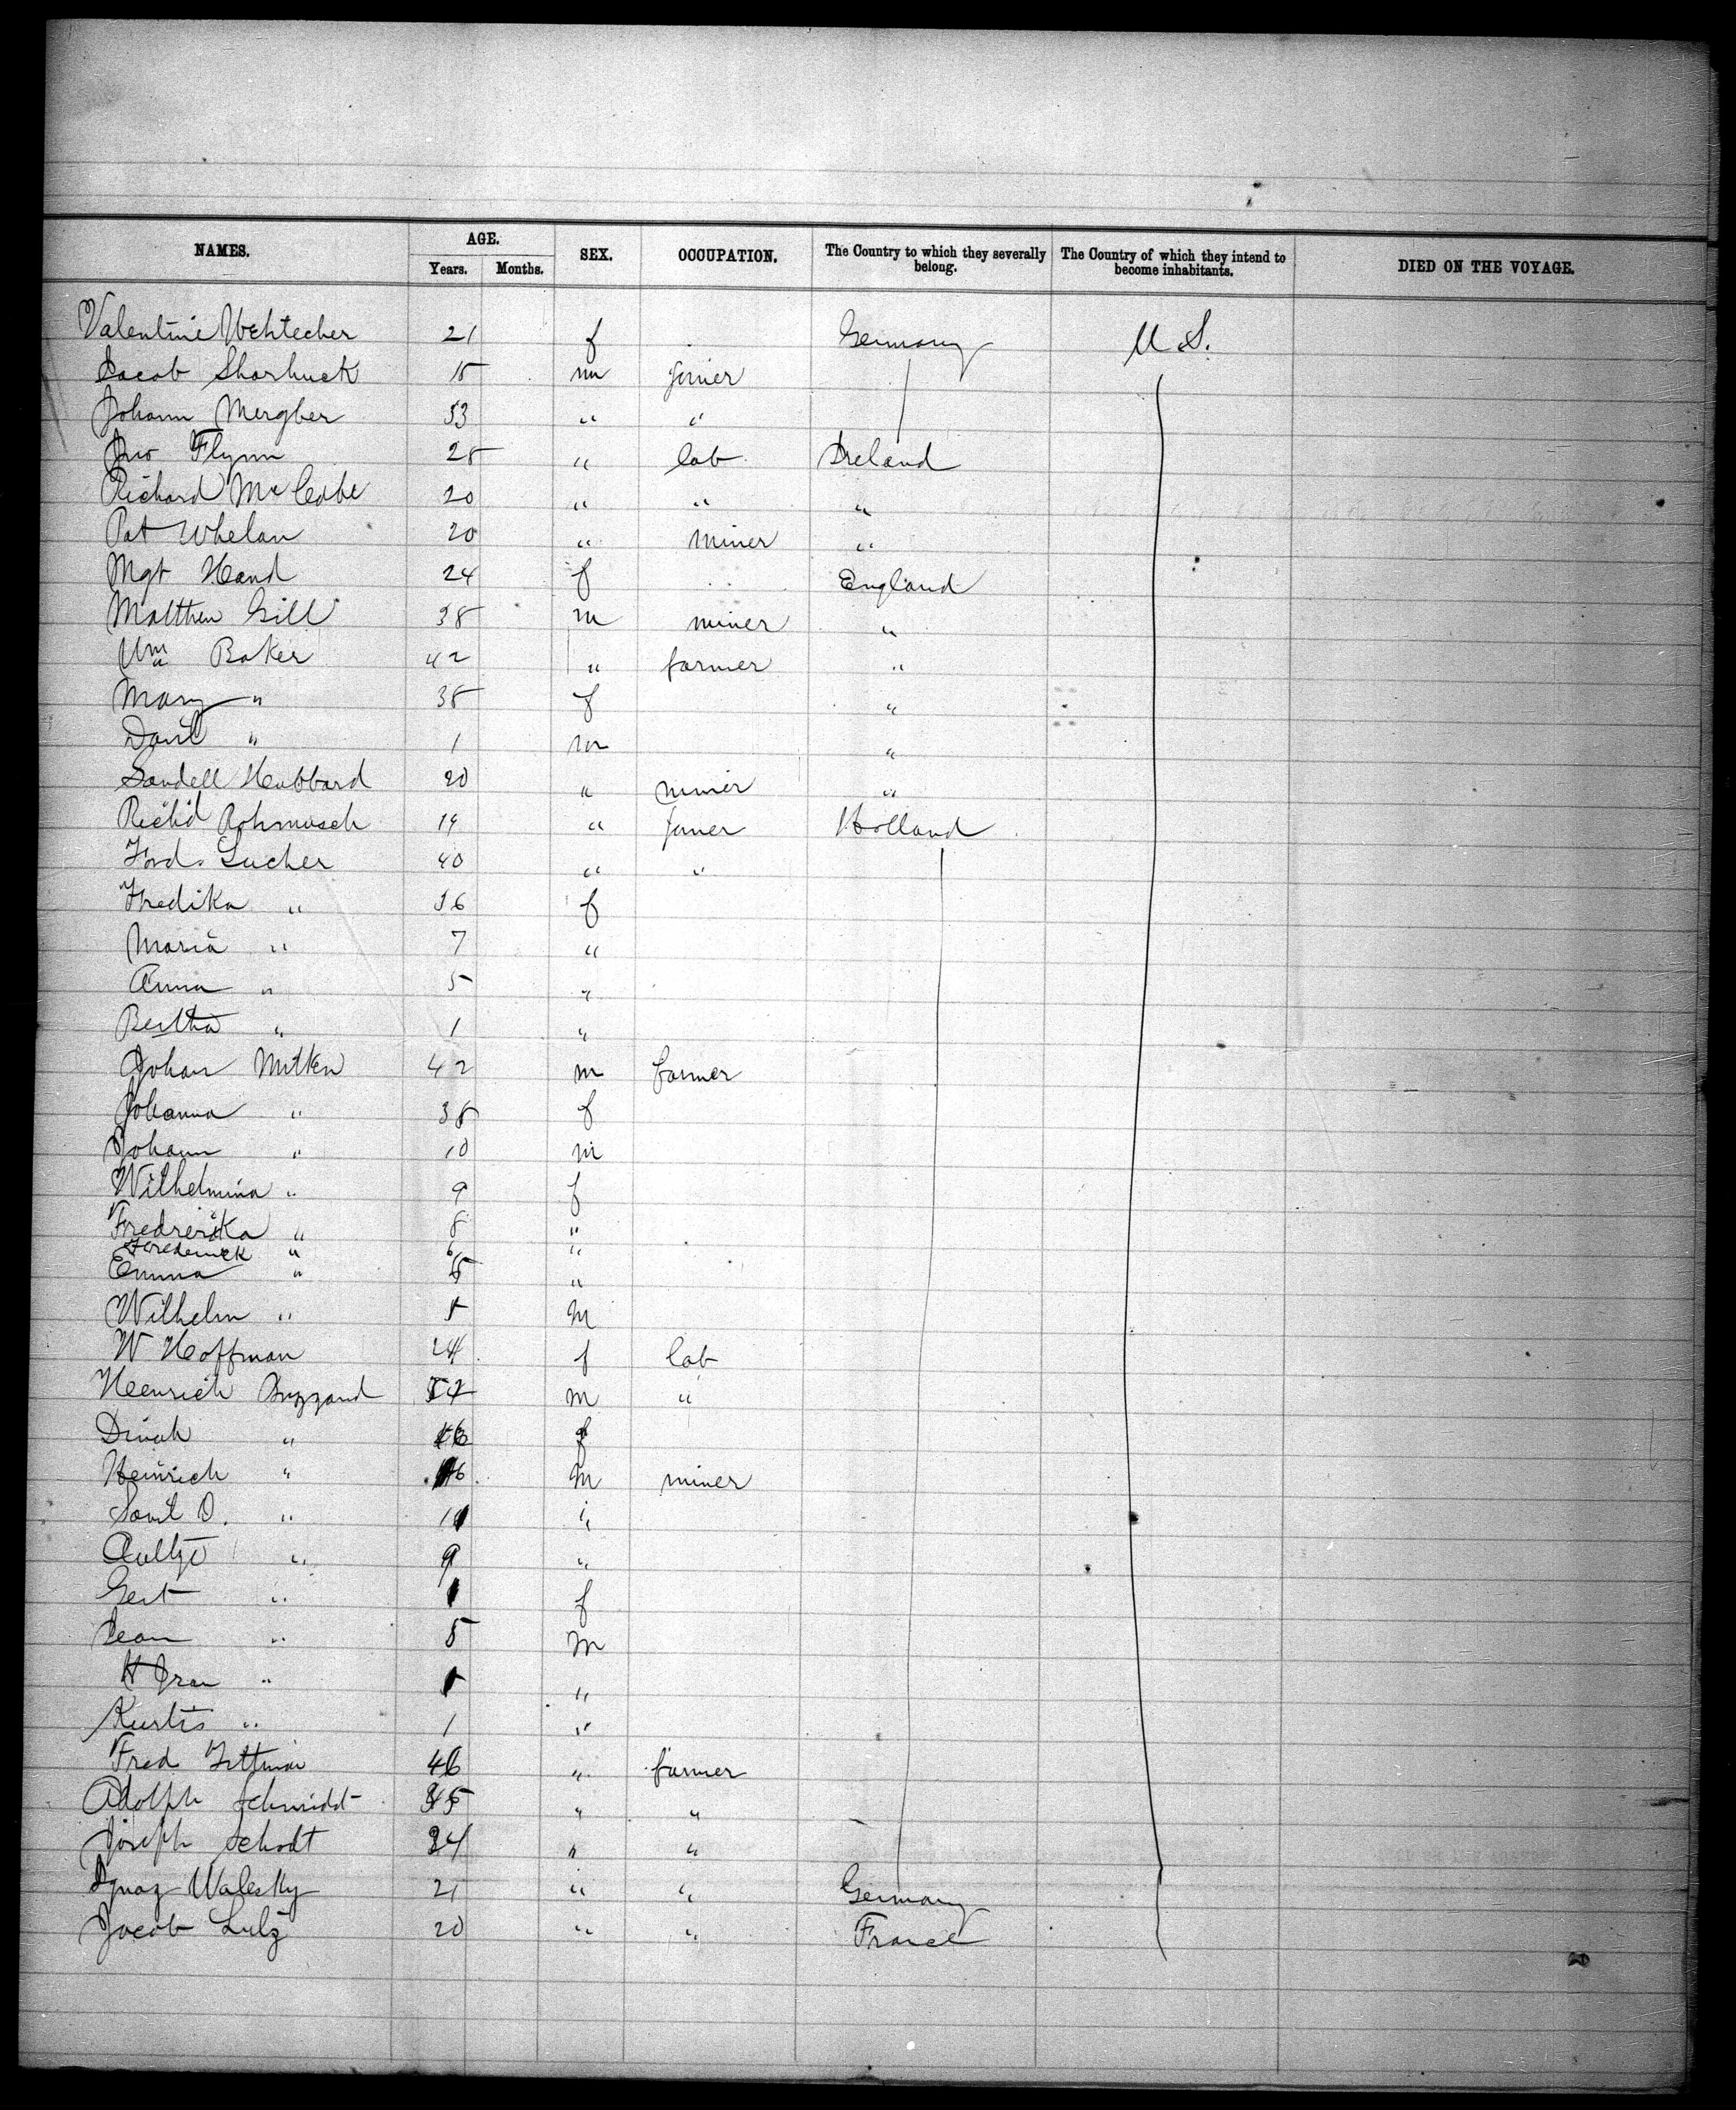 NAMES. AGE. SEX. OCCUPATION. The Country to which they severally belong. The Country of which they intend to become inhabitants. DIED ON THE VOYAGE.
Years. Months.
Valentine 21 f Germany U.S.
Jacob 15 m joiner
Johann Mergber 53 " "
Jno Flynn 25 " lab Ireland
Richard McCabe 20 " " "
Pat Whelan 20 " miner "
Mgt Hand 24 f England
Matthew Gill 38 m miner "
Wm Baker 42 " farmer "
Mary " 38 f "
Danl " 1 m "
Sandell Hubbard 20 " miner "
Richd 19 " joiner Holland
Lucher 40 " "
Fredika " 36 f
Maria " 7 "
Anna " 5 "
Bertha " 1 "
Johan 42 m farmer
Johanna " 38 f
Johann " 10 m
Wilhelmina " 9 f
Fredrerika " 8 "
Frederick " 6 "
Emma " "
Wilhelm " m
W Hoffman 24 f lab
Heinrich Buzzand m "
Dinah " f
Heinrich " m miner
Saml O. " "
" 9 "
Gert " f
Jean " 5 m
" "
Kurtis " 1 "
Fred 46 " farmer
Adolph Schmidt " "
Joseph Schodt 34 " "
Ignaz Walesky 21 " " Germany
Jacob Lulz 20 " " France